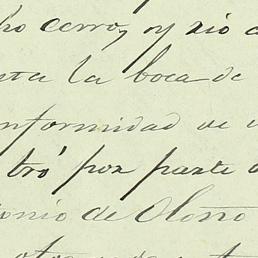 ho cerro, y rio
ta la boca de
nformidad de
tró por parte
onio de Olono